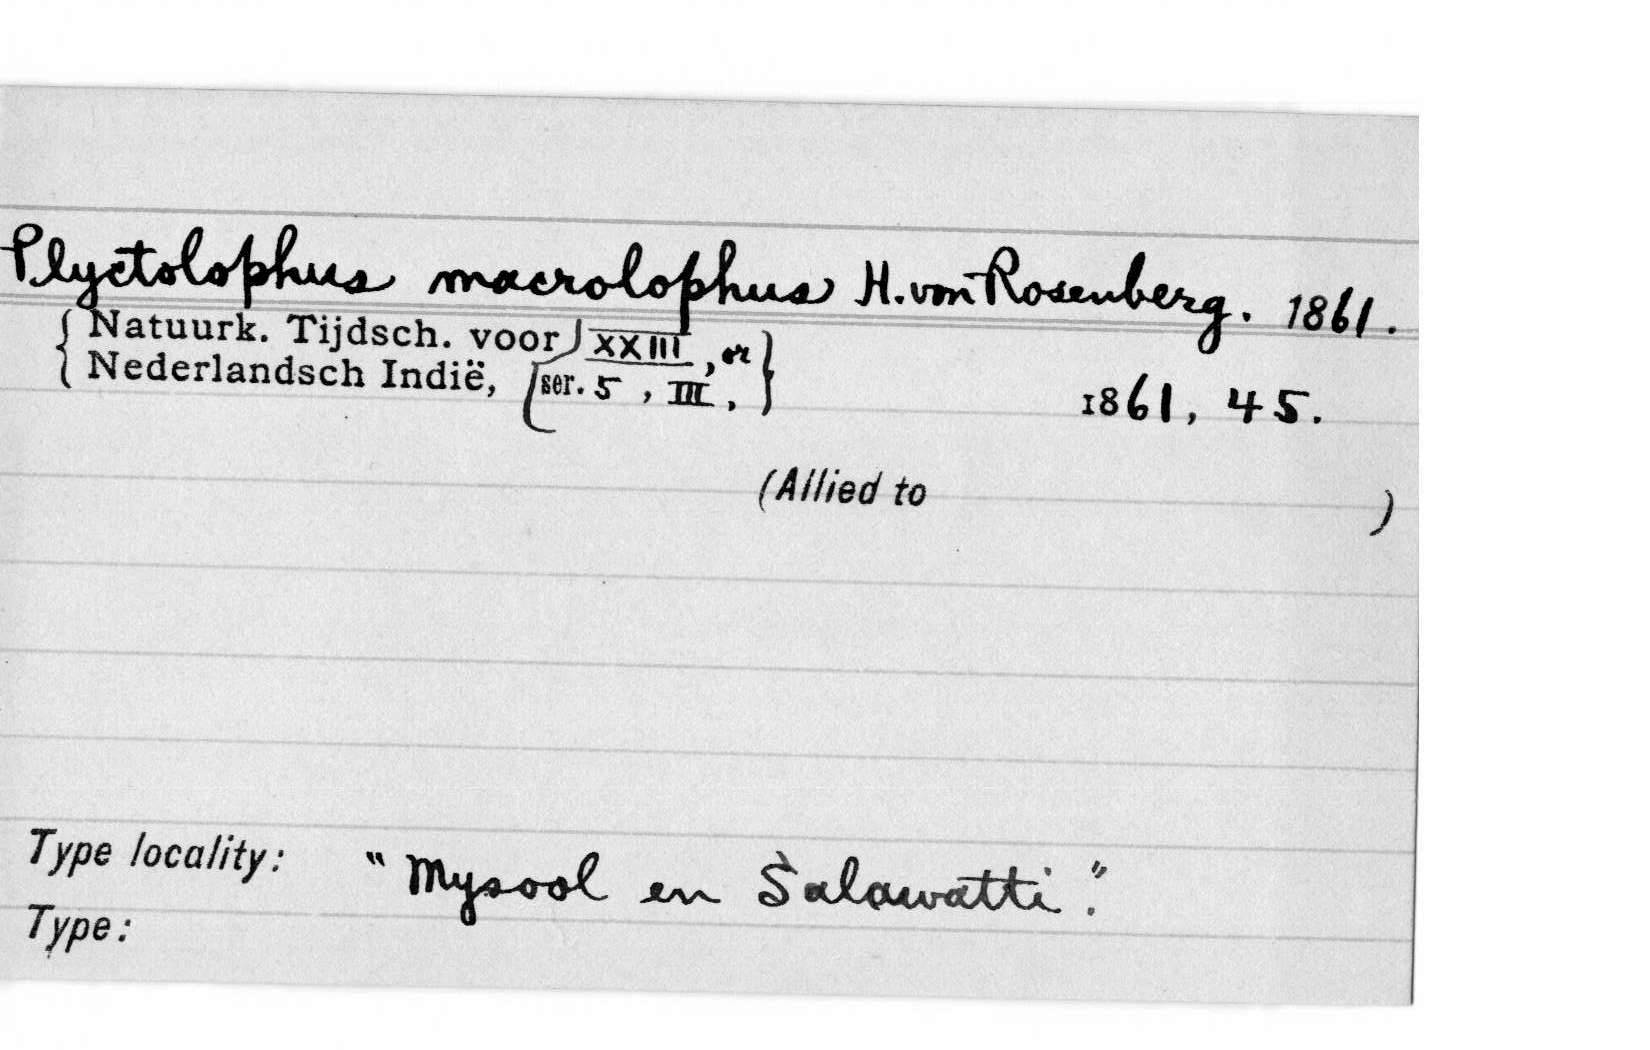 Plyctolophus macrolophus H. von Rosenberg. 1861.
{ Natuurk. Tijdsch. voor XXIII, or }
{ Nederlandsch Indië, ser. 5, III, } 1861, 45.
(Allied to )
Type locality: "Mysool en Salawatti."
Type: